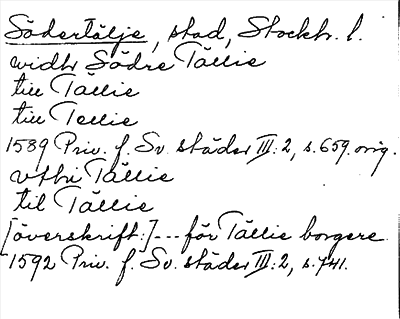 Södertälje, stad, Stockh. l.
widhr Södre Tällie
till Tällie
till Tellie
1589 Priv. f. Sv. städer III:2, s. 659. orig.
vthi Tällie
til Tällie
[överskrift:] --- för Tällie borgere
1592 Priv. f. Sv. städer III:2, s. 741.